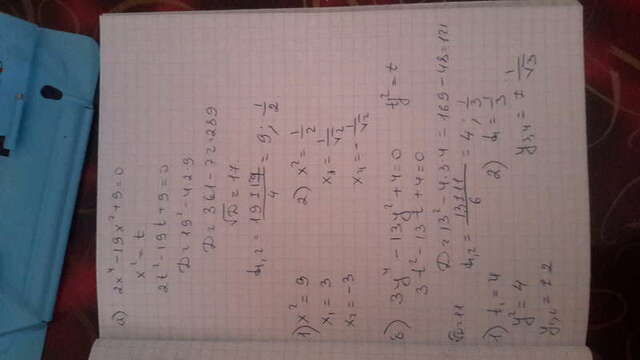 а) 2x⁴-19x²+9=0
x²=t
2t²-19t+9=0
D=19²-4·2·9
D=361-72=289
√D=17
t₁,₂=(19±17)/4=9; 1/2
1) x²=9
x₁=3
x₂=-3
2) x²=1/2
x₃=1/√2
x₄=-1/√2
б) 3y⁴-13y²+4=0 y²=t
3t²-13t+4=0
D=13²-4·3·4=169-48=121
√D=11
t₁,₂=(13±11)/6=4; 1/3
1) t₁=4
y²=4
y₁,₂=±2
2) t₁=1/3
y₃,₄=±1/√3